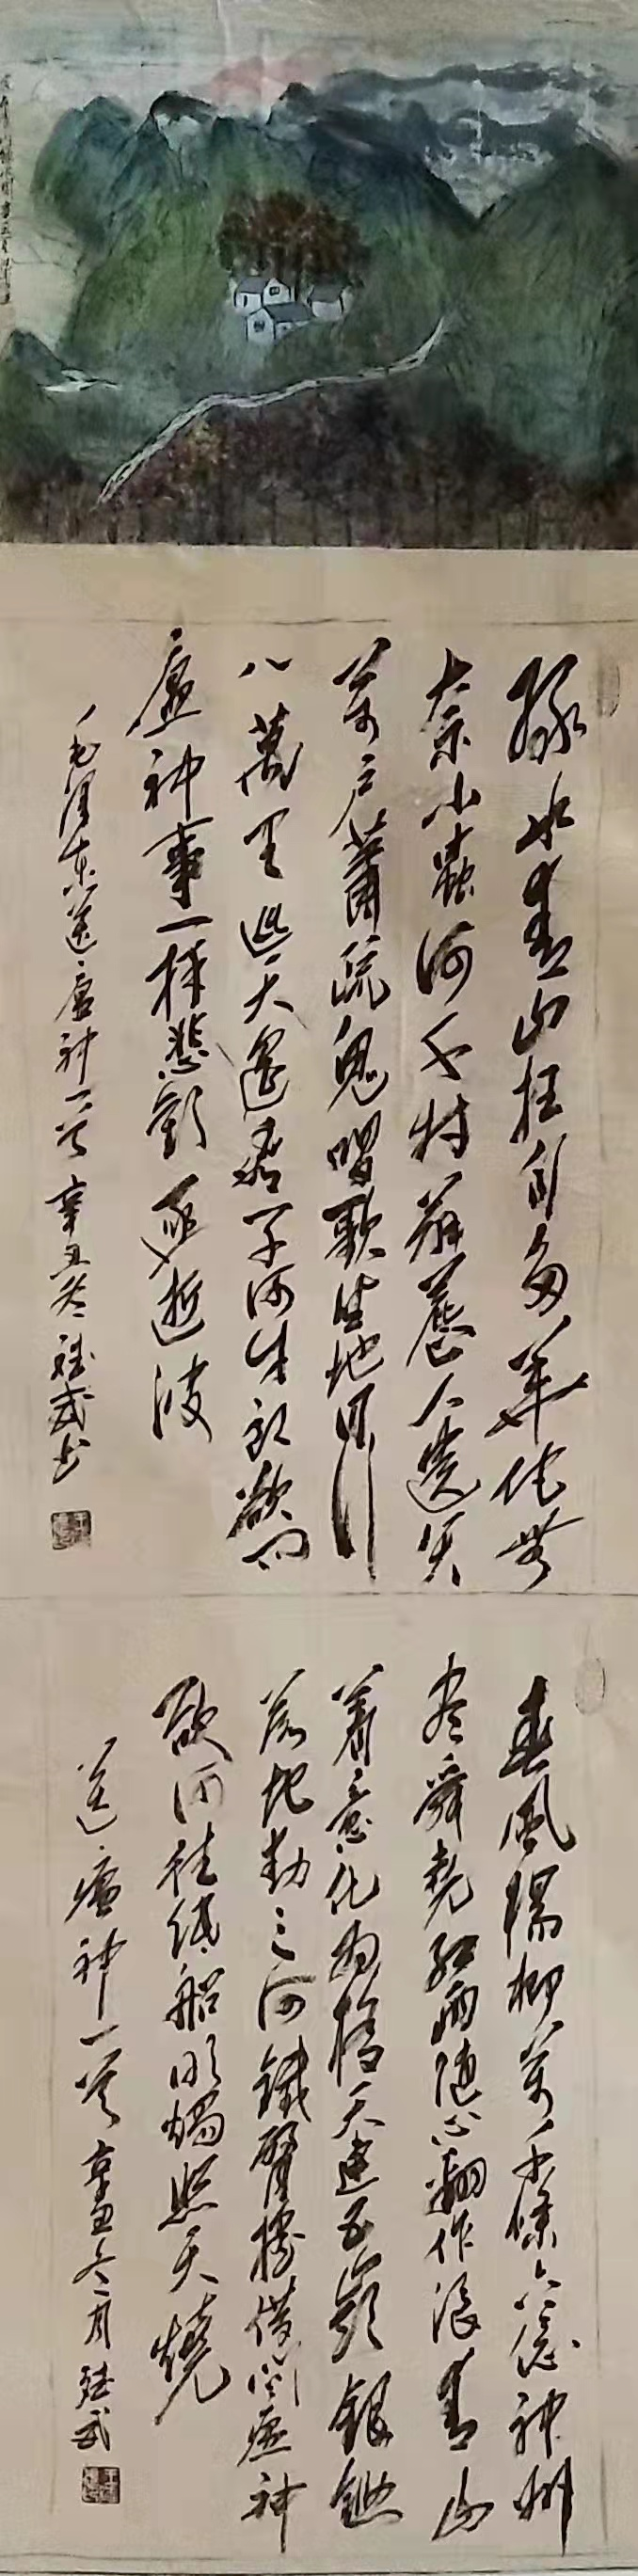 绿水青山枉自多华佗无
奈小虫何千村薜荔人遗矢
万户萧疏鬼唱歌坐地日行
八萬里巡天遥看一千河牛郎欲问
瘟神事一样悲歡逐逝波
毛泽东送瘟神一首 辛丑冬 武书
春風楊柳萬千條六億神州
尽舜尧红雨随心翻作浪青山
着意化为桥天連五嶺銀鋤
落地动三河鐵臂摇借问瘟神
欲何往纸船明烛照天燒
送瘟神一首 辛丑冬月 武